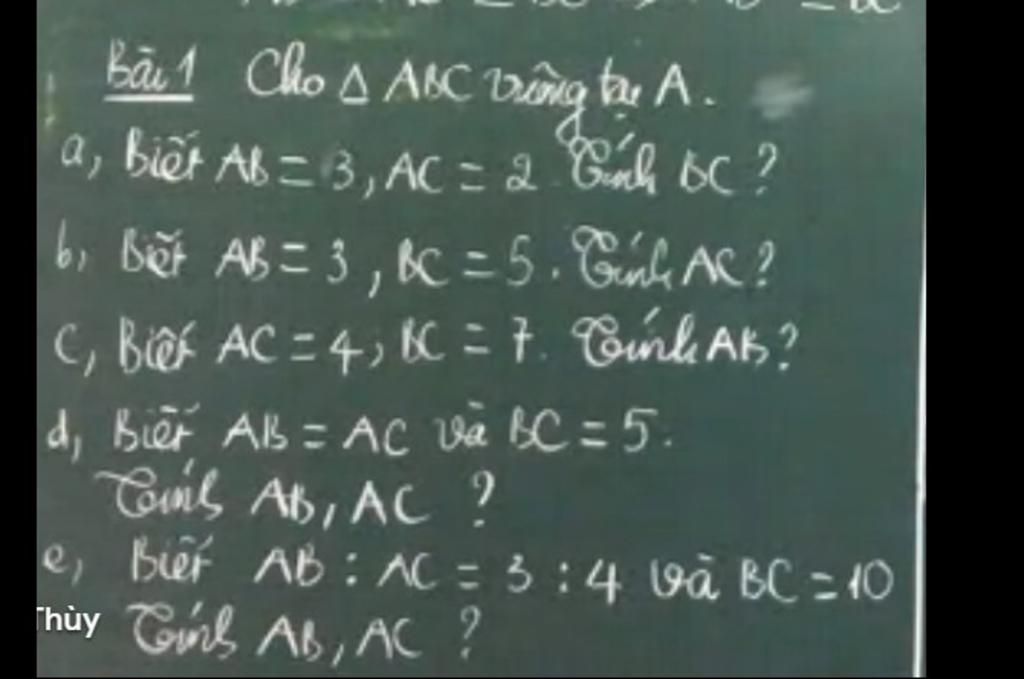 Bài 1 Cho Δ ABC vuông tại A.
a, Biết AB = 3, AC = 2. Tính BC ?
b, Biết AB = 3, BC = 5. Tính AC ?
c, Biết AC = 4, BC = 7. Tính AB ?
d, Biết AB = AC và BC = 5.
Tính AB, AC ?
e, Biết AB : AC = 3 : 4 và BC = 10
Thùy Tính AB, AC ?